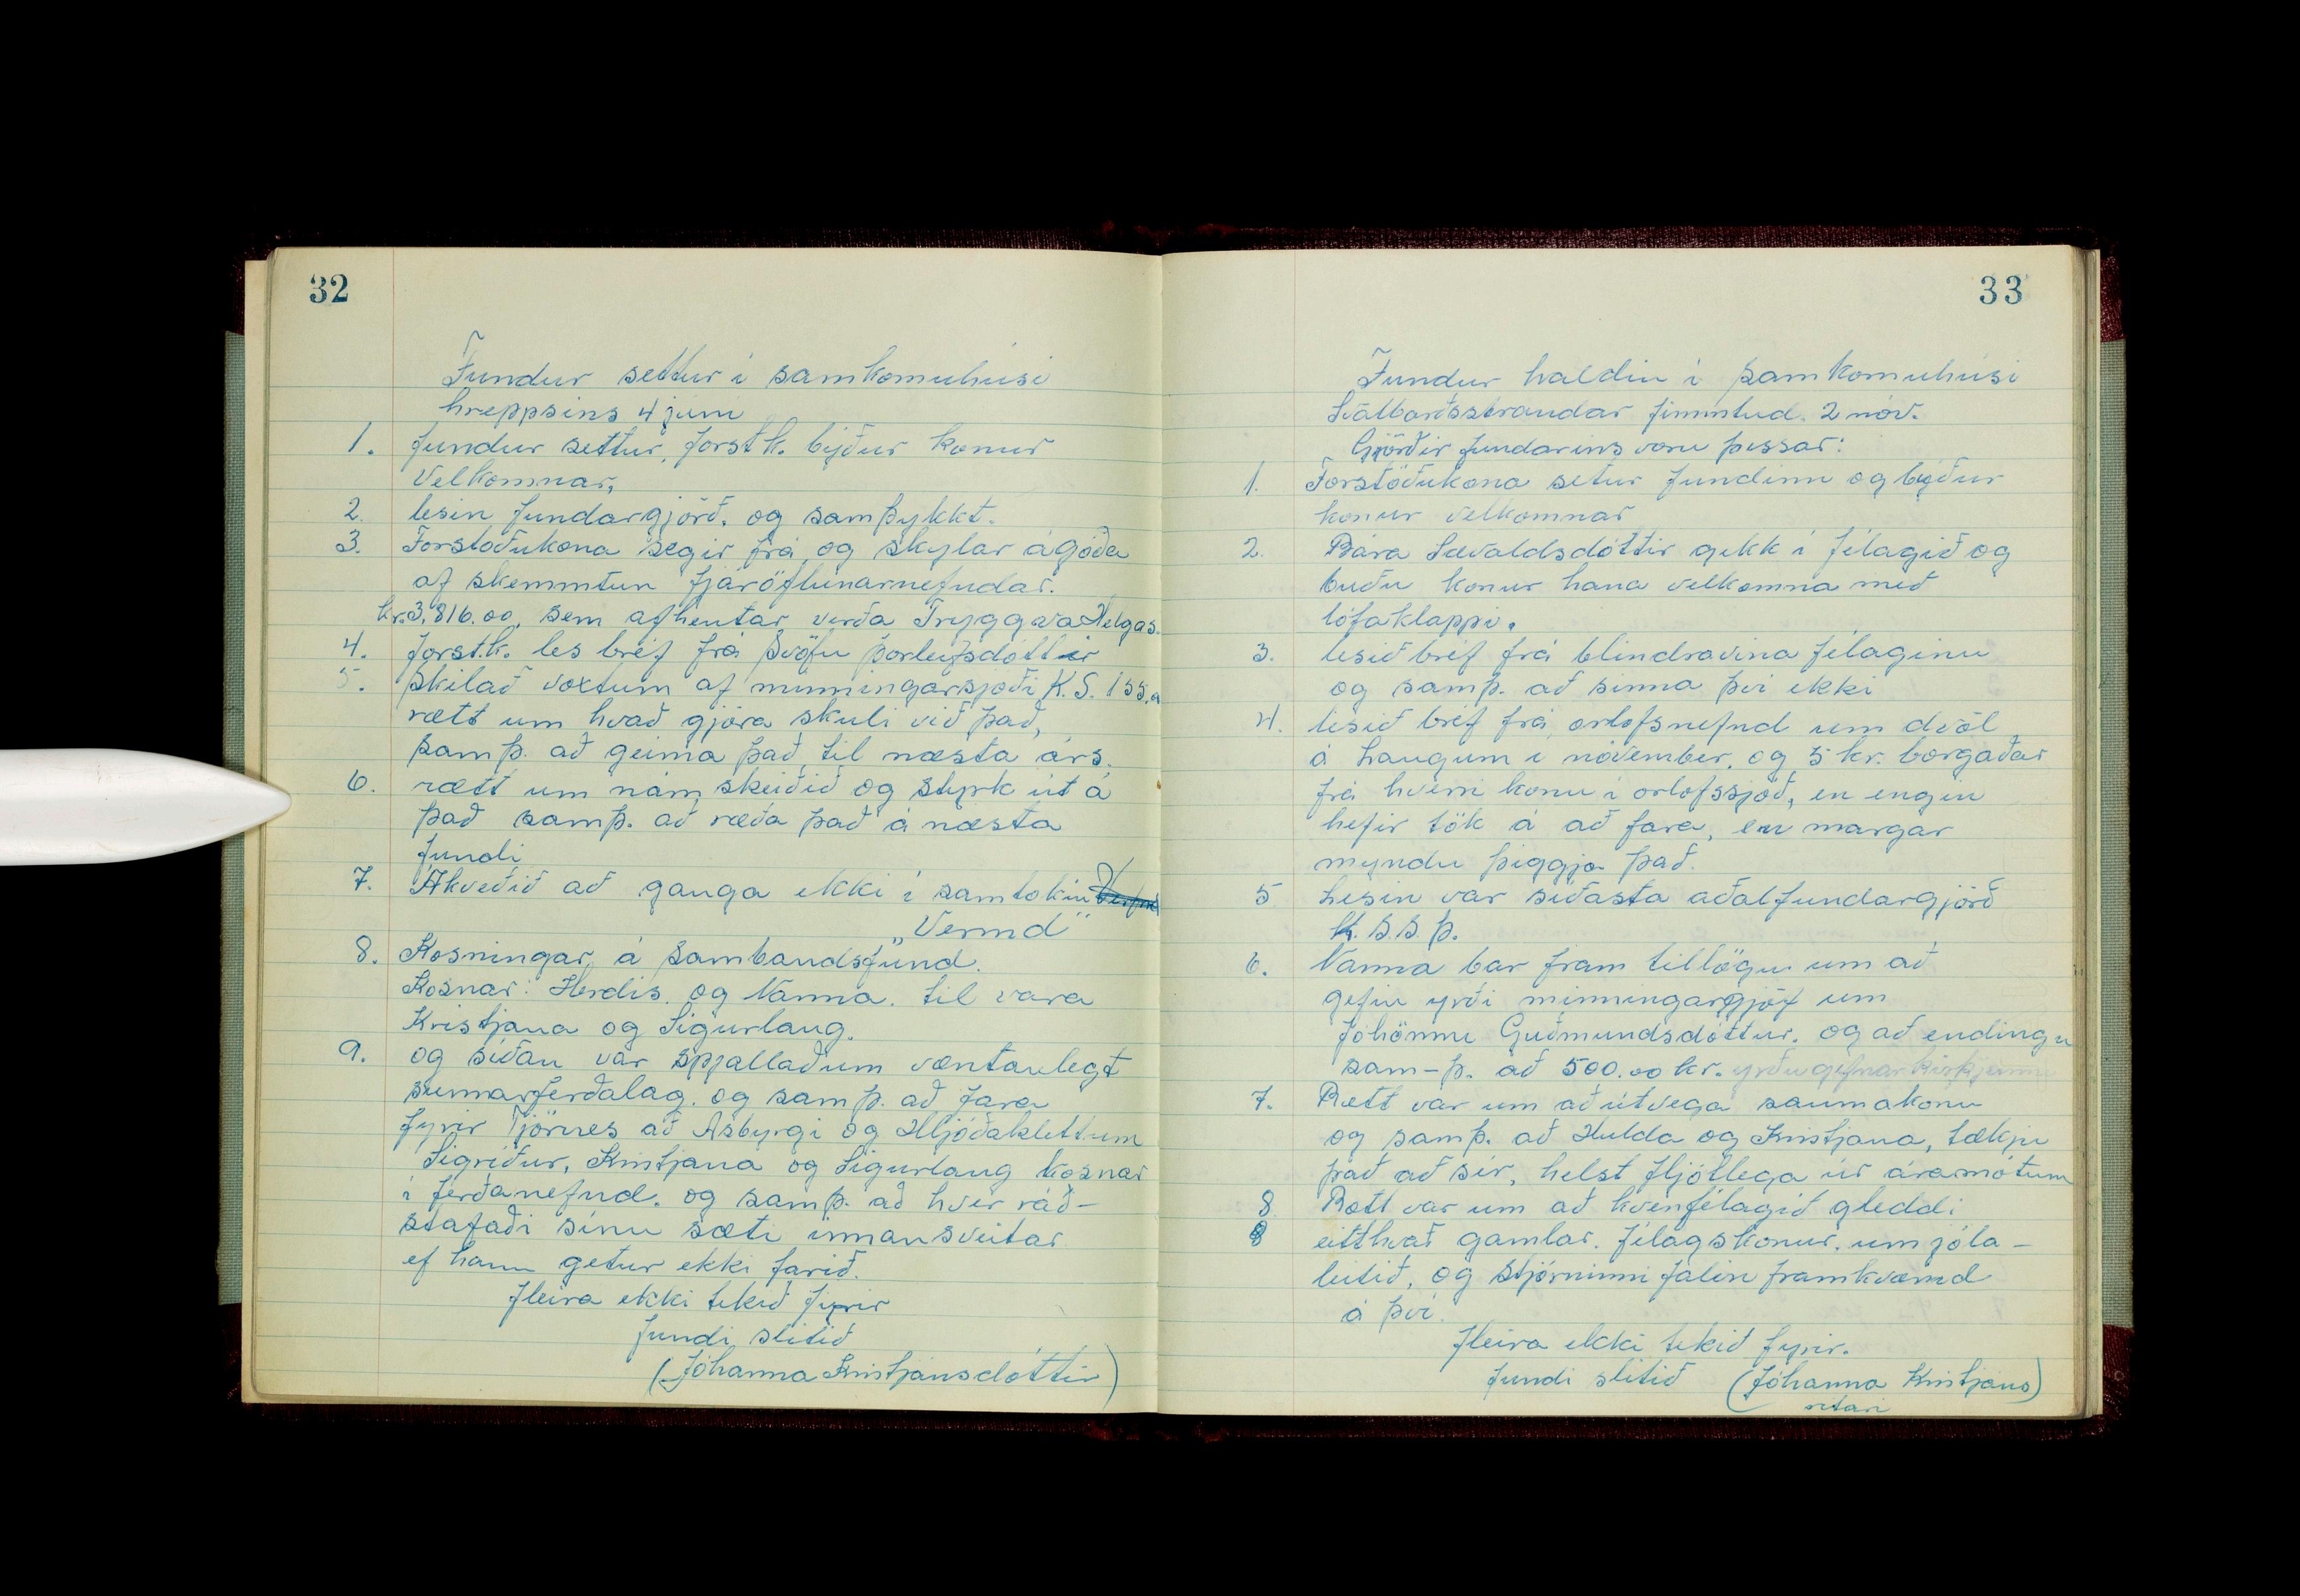 32
Fundur settur í samkomuhúsi
hreppsins 4 júní
1. fundur settur, forst.k. býður konur
Velkomnar,
2. lesin fundargjörð, og samþykkt.
3. Forstöðukona segir frá og skylar ágóða
af skemmtun fjáröflunarnefndar.
kr. 3,816.00, sem afhentar verða Tryggva Helgas.
4. forst.k. les bréf frá Svöfu Þorleifsdóttir
5. skilað voxtum af minningarsjoði K.S.
rætt um hvað gjöra skuli við það,
samþ. að geima það, til næsta árs.
6. rætt um námskeiðið og styrk út á
það samþ. að ræða það á næsta
fundi
7. Ákveðið að ganga ekki í samtokin
„Vernd"
8. Kosningar, á sambandsfund.
Kosnar: Herdís. og Nanna. til vara
Kristjana og Sigurlaug.
9. og síðan var spjallað um væntanlegt
sumarferðalag. og samþ. að fara
fyrir Tjörnes að Asbyrgi og Hljóðaklettum
Sigríður, Kristjana og Sigurlaug kosnar
í ferðanefnd. og samþ. að hver ráð-
stafaði sínu sæti innansveitar
ef hann getur ekki farið.
fleira ekki tekið fyrir
fundi slitið
(Jóhanna Kristjánsdóttir)
33
Fundur haldin í samkomuhúsi
Svalbarðsstrandar fimmtud. 2 nóv.
Gjörðir fundarins voru þessar:
1. Forstöðukona setur fundinn og býður
konur velkomnar
2. Bára Sævaldsdóttir gekk í félagið og
buðu konur hana velkomna með
lófaklappi.
3. lesið bréf frá blindravina félaginu
og samþ. að sinna því ekki
4. lesið bréf frá orlofsnefnd um dvöl
á Laugum í nóvember, og 5 kr. borgaðar
frá hverri konu í orlofssjóð, en engin
hefir tök á að fara, en margar
myndu þiggja það.
5 Lesin var síðasta aðalfundargjörð
K.S.S.Þ.
6. Nanna bar fram tillögu um að
gefin yrði minningargjöf um
Jóhönnu Guðmundsdóttur. og að endingu
sam-þ. að 500.00 kr. yrðu gefnar kirkjunni
7. Rætt var um að útvega saumakonu
og samþ. að Hulda og Kristjana, tækju
það að sér, helst fljótlega úr áramótum
8. Rætt var um að kvenfélagið gleddi
8 eitthvað gamlar. félagskonur. um jóla-
leitið, og stjórninni falin framkvæmd
á því.
fleira ekki tekið fyrir.
fundi slitið (Jóhanna Kristjáns)
ritari